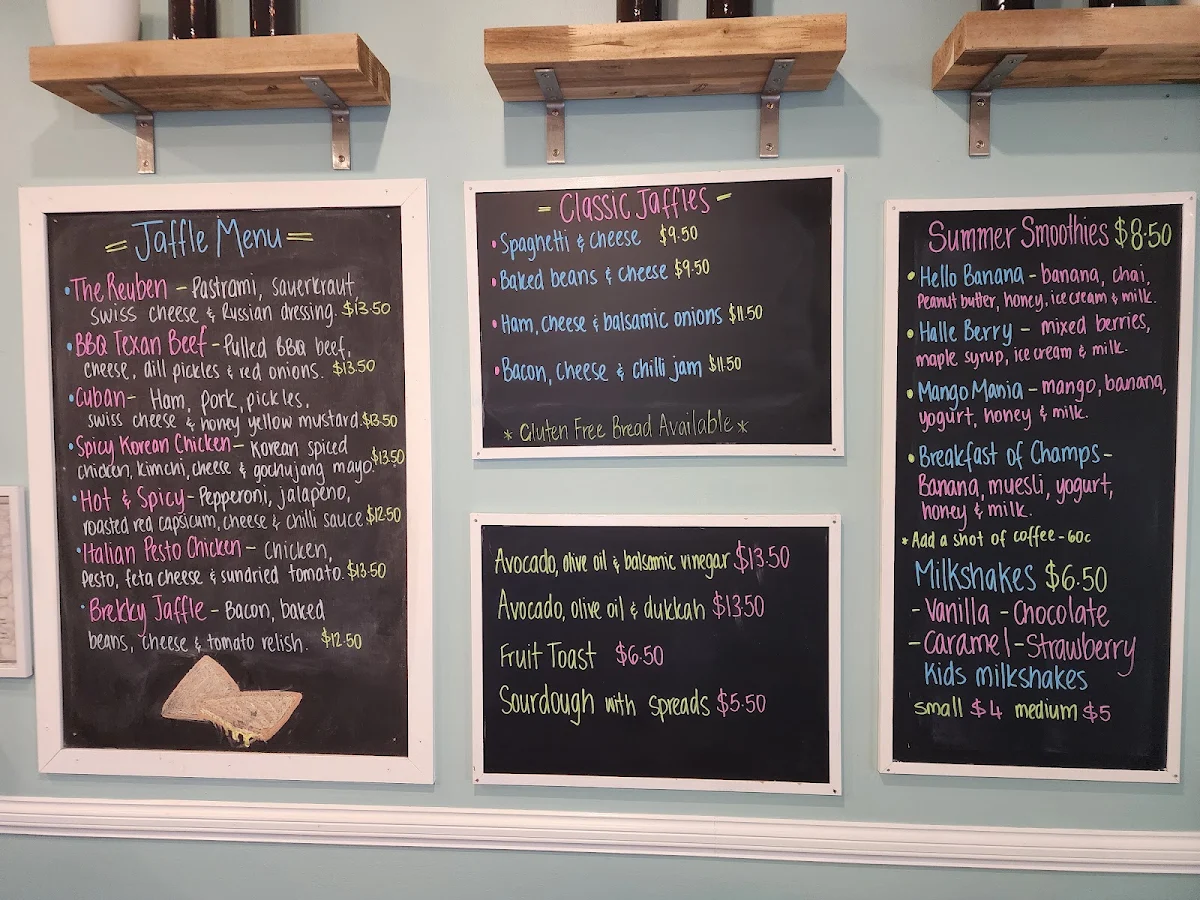 = Jaffle Menu =
• The Reuben - Pastrami, sauerkraut,
swiss cheese & Russian dressing. $13.50
• BBQ Texan Beef - Pulled BBQ beef,
cheese, dill pickles & red onions. $13.50
• Cuban - Ham, pork, pickles,
swiss cheese & honey yellow mustard. $13.50
• Spicy Korean Chicken - Korean spiced
chicken, kimchi, cheese & gochujang mayo. $13.50
• Hot & Spicy - Pepperoni, jalapeno,
roasted red capsicum, cheese & chilli sauce $12.50
• Italian Pesto Chicken - chicken,
Pesto, feta cheese & sundried tomato. $13.50
• Brekky Jaffle - Bacon, baked
beans, cheese & tomato relish. $12.50
= Classic Jaffles =
• Spaghetti & cheese $9.50
• Baked beans & cheese $9.50
• Ham, cheese & balsamic onions $11.50
• Bacon, cheese & chilli jam $11.50
* Gluten Free Bread Available *
Avocado, olive oil & balsamic vinegar $13.50
Avocado, olive oil & dukkah $13.50
Fruit Toast $6.50
Sourdough with spreads $5.50
Summer Smoothies $8.50
• Hello Banana - banana, chai,
Peanut butter, honey, ice cream & milk.
• Halle Berry - mixed berries,
maple syrup, ice cream & milk.
• Mango Mania - mango, banana,
yogurt, honey & milk.
• Breakfast of Champs -
Banana, muesli, yogurt,
honey & milk.
* Add a shot of coffee - 60c
Milkshakes $6.50
- Vanilla - Chocolate
- Caramel - Strawberry
Kids milkshakes
small $4 medium $5